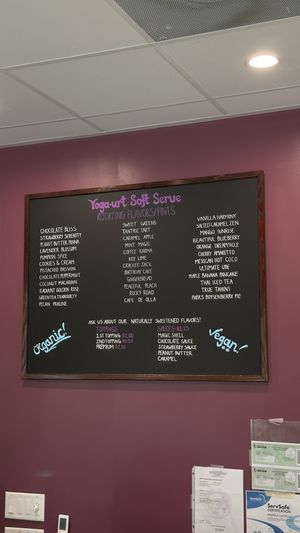 Yoga-urt Soft Serve
ROTATING FLAVORS/PINTS
CHOCOLATE BLISS
STRAWBERRY SERENITY
PEANUT BUTTER NANNA
LAVENDER BLOSSOM
PUMPKIN SPICE
COOKIES & CREAM
PISTACHIO PASSION
CHOCOLATE PEPPERMINT
COCONUT MACAROON
RADIANT GOLDEN ROSE
GREEN TEA TRANQUILITY
PECAN PRALINE
SWEET GREENS
TANTRIC TART
CARAMEL APPLE
MINT MAGIC
COFFEE KARMA
KEY LIME
CRACKER JACK
BIRTHDAY CAKE
GINGERBREAD
PEACEFUL PEACH
ROCKY ROAD
CAFE DE OLLA
VANILLA HARMONY
SALTED CARAMEL ZEN
MANGO SUNRISE
BEAUTIFUL BLUEBERRY
ORANGE DREAMSICLE
CHERRY AMARETTO
MEXICAN HOT COCO
ULTIMATE UBE
MAPLE BANANA PANCAKE
THAI ICED TEA
TRUE THAI'NS
PARK'S BOYSENBERRY PIE
ASK US ABOUT OUR NATURALLY SWEETENED FLAVORS!
Organic!
TOPPINGS
1ST TOPPING
2ND TOPPING
PREMIUM
SAUCES
MAGIC SHELL
CHOCOLATE SAUCE
STRAWBERRY SAUCE
PEANUT BUTTER
CARAMEL
Vegan!
ServSafe
CERTIFICATION